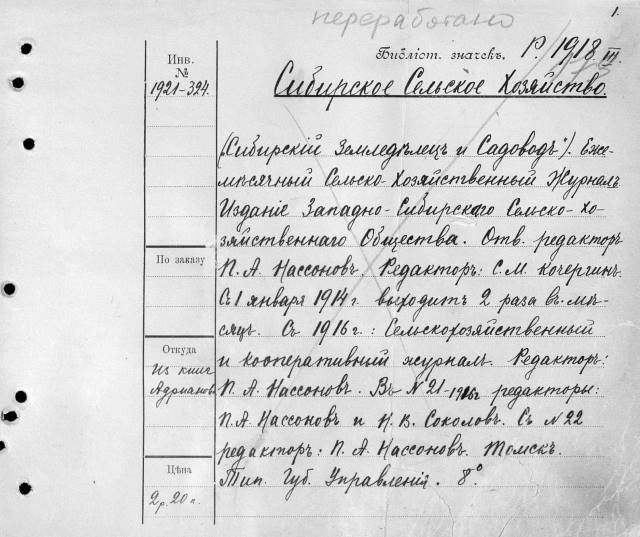 переработано
1.
Библіот. значекъ. Р. 1918 III.
Инв.
№
1921-324.
Сибирское Сельское Хозяйство.
(Сибирскій Земледѣлецъ и Садоводъ"). Еже-
мѣсячный Сельско-Хозяйственный Журналъ
Изданіе Западно-Сибирскаго Сельско-хо-
зяйственнаго Общества. Отв. редакторъ
П. А. Нассоновъ. Редакторъ: С. М. Кочергинъ.
Съ 1 января 1914 г. выходитъ 2 раза въ мѣ-
сяцъ. Съ 1916 г.: Сельскохозяйственный
и кооперативный журналъ. Редакторъ:
П. А. Нассоновъ. Въ № 21-1916г редакторы:
П. А. Нассоновъ и Н. В. Соколовъ. Съ № 22
редакторъ: П. А. Нассоновъ. Томскъ.
Тип. Губ. Управленія. 8°
По заказу
Откуда
Из книг
Адрианова
Цѣна
2р. 20 к.